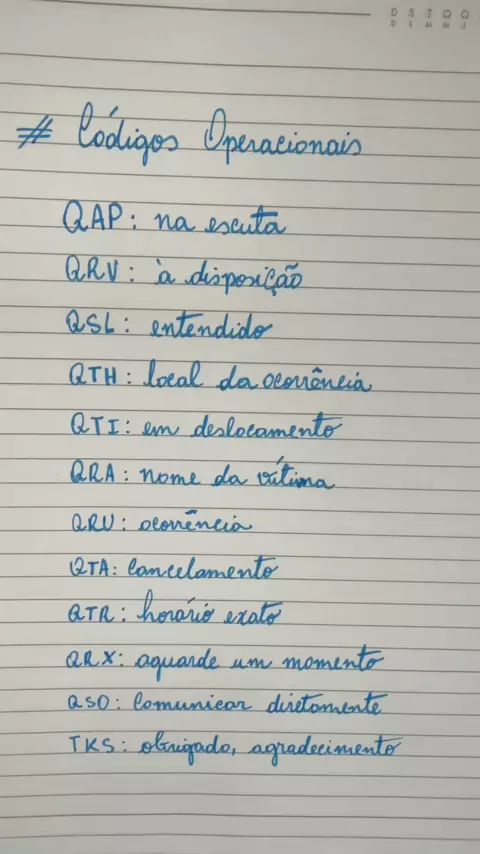 D S T Q Q
# Códigos Operacionais
QAP: na escuta
QRV: à disposição
QSL: entendido
QTH: local da ocorrência
QTI: em deslocamento
QRA: nome da vítima
QRU: ocorrência
QTA: cancelamento
QTR: horário exato
QRX: aguarde um momento
QSO: comunicar diretamente
TKS: obrigado, agradecimento